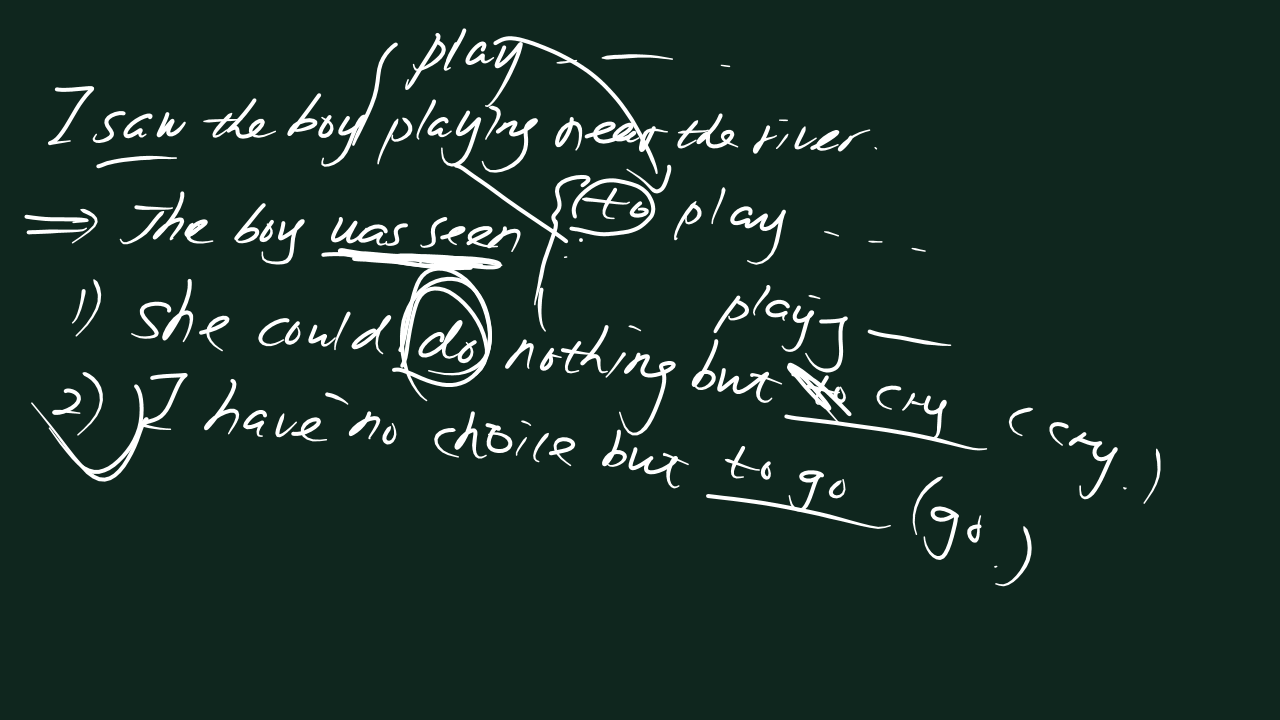 play - — -
I saw the boy playing near the river.
⇒ The boy was seen (to) play - - - -
playing —
1) She could do nothing but to cry (cry.)
2) I have no choice but to go (go.)